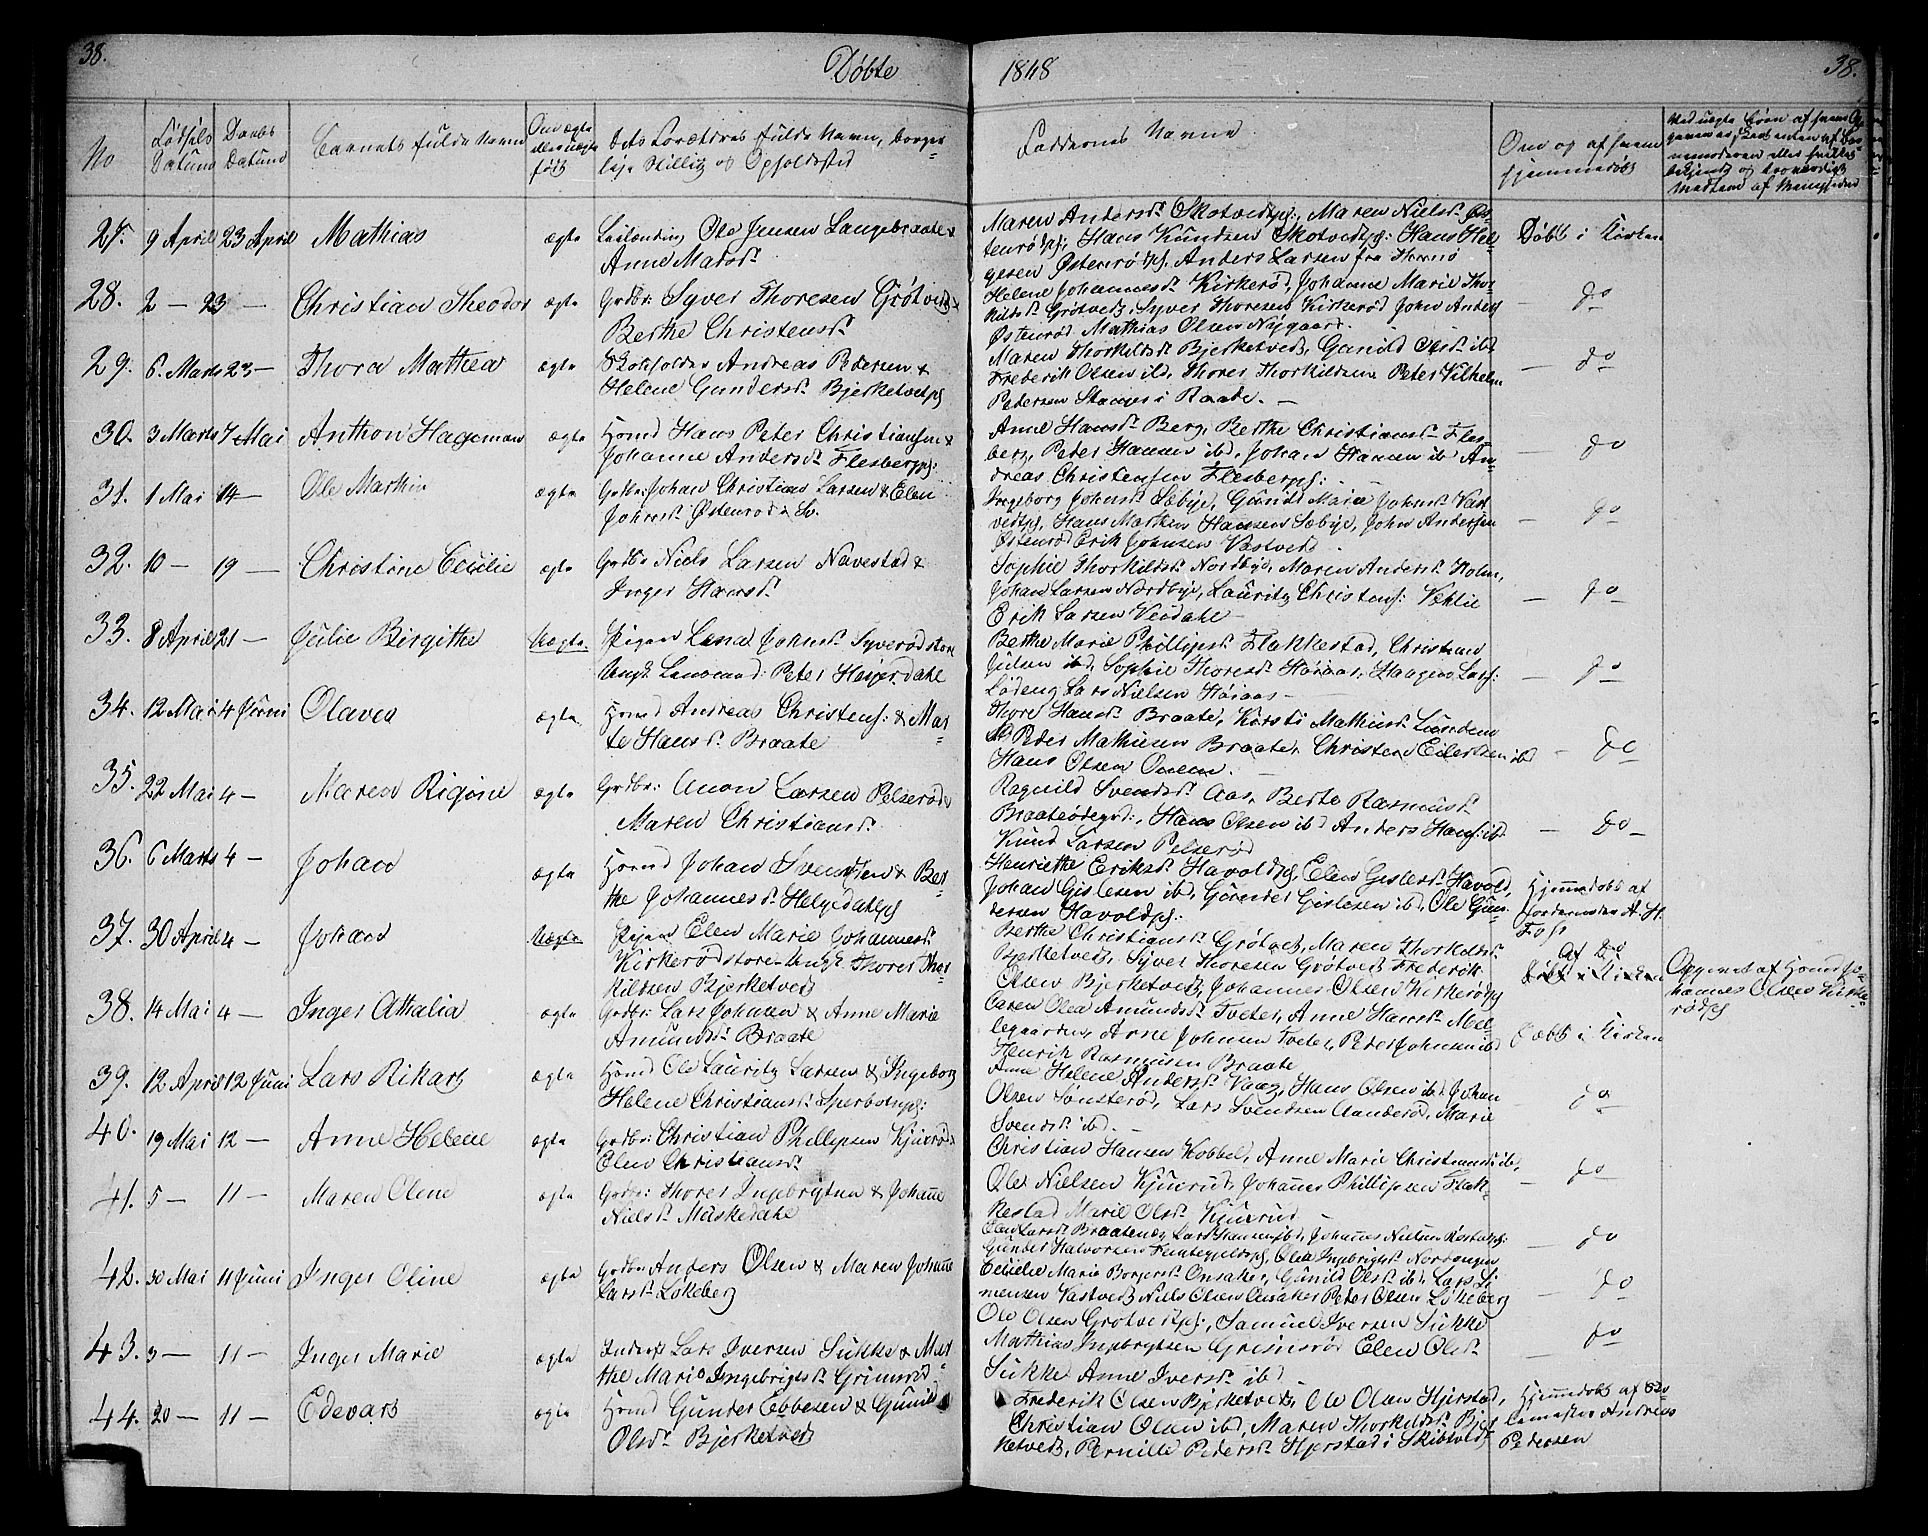 38. Døbte 1848 38.
No
Fødsels Datum
Daabs Datum
Barnets fulde Navn
Om ægte eller uægte født
Dets Forældres fulde Navn, borgerlige Stilling og Opholdssted
Faddernes Navne
Om og af hvem hjemmedøbt
27. 9 April 23 April Mathias ægte Leilænding Ole Jensen Langebraate &
Anne Madsd.
Maren Andersd. Skotvedtpf:, Maren Nielsd. Øs-
tenrødpf:, Hans Knudsen Skotvedtpf: Hans Hel-
gesen Østenrødpf, Anders Larsen fra Thomø
Døbt i Kirken
28. 2 — 23 — Christian Theodor ægte Grdbr: Syver Thoresen Grøtvedt &
Berthe Christensd.
Helene Johannesd. Kirkerød, Johanne Marie Thor-
kildsd. Grøtvedt, Syver Thoresen Kirkerød John Anders
Østenrød Mathias Olsen Nygaard.
— do
29. 6. Marts 23 — Thora Mathea ægte Skoleholder Andreas Pedersen &
Helene Gundersd. Bjerketvedtpf
Maren Thorkildsd. Bjerketvedt, Gunild Olsd. ibd.
Frederik Olsen ibd, Thores Thorkildsen Peter Vilhelm
Pedersen Stamnes i Raade. —
— do
30. 3 Marts 7 Mai Anthon Hageman ægte Hsmd Hans Peter Christiansen &
Johanne Andersd. Flesbergpf:
Anne Hansd. Berg, Berthe Christiansd. Fles-
berg, Peter Hansen ibd, Johan Hansen ib An-
dreas Christensen Flesbergpf:
— do
31. 1 Mai 14 — Ole Martin ægte Grdbr. Johan Christian Larsen & Elen
Johnsd. Østenrød
Ingeborg Johnsd. Sæbye, Gunild Marie Johnsd. Vast-
vedtpf, Hans Martin Hansen Sæbye, John Andersen
Østenrød Erik Johnsen Vastvedt
— do
32. 10 — 19 — Christine Cecilie ægte Grdbr Niels Larsen Navestad &
Inger Hansd.
Sophie Thorkildsd. Nordbye, Maren Andersd. Holm,
Johan Larsen Nordbye, Lauritz Christens:
Erik Larsen Vendahl —
— do
33. 8 April 21 — Julie Birgithe Uægte. Pigen Lena Johnsd. Syverødstore
Ungk. Peter Dahle
Berthe Marie Phillipsd. Flakkestad, Christian
Julsen ibd, Sophie Thoresd. Høiaas, Haagen Lars:
Lars Nielsen Høiaas —
— do
34. 12 Mai 4 Juni Olava ægte Hsmd Andreas Christens: & Mar-
te Hansd. Braate
Thore Hansd. Braate, Kersti Mathisd. Lunden
Peder Mathisen Braate, Christen Eilertsen ibd
Hans Olsen
— do
35. 22 Mai 4 — Maren Rigine ægte Grdbr: Anon Larsen Pelserød &
Maren Christiansd.
Ragnild Svendsd. Aas, Berte Rasmusd.
Braateødegrd:, Hans Olsen ibd Anders Hans: ibd.
Knud Larsen Pelserød
— do —
36. 6 Marts 4 — Johan ægte Hsmd Johan Svendsen & Ber-
the Johannesd. Helgedahlpf
Henriethe Eriksd. Havoldpf, Elen Gislesd. Havold,
Johan Gislesen ibd, Gunder Gislesen ibd, Ole Gun-
dersen Havoldpf:
Hjemmedøbt af
Jordemoder A. H.
Foss
37. 30 April 4 — Johan Uægte Pigen Elen Marie Johannesd.
Kirkerødstore Ungk Thores Thor-
kildsen Bjerketvedt
Berthe Christiansd. Grøtvet, Maren Thorkildsd.
Bjerketvedt, Syver Thoresen Grøtvedt Frederik
Olsen Bjerketvedt, Johannes Olsen Kirkerødpf
Af do
Døbt i Kirken
Opgivet af Hsmd Jo-
hannes Olsen Kirke-
rødpf
38. 14 Mai 4 — Inger Athalia ægte Grdbr: Lars Johnsen & Anne Marie
Amundsd. Braate
Karen Olea Amundsd. Tveter, Anne Hansd. Mel-
legaarden, Arne Johnsen Tveter, Peder Johnsen ibd
Henrik Rasmussen Braate
Døbt i Kirken
39. 12 April 12 Juni Lars Rikart ægte Hsmd Ole Lauritz Larsen & Ingeborg
Helene Christiansd. Sperbotspf:
Anne Helene Andersd. Vaag, Hans Olsen ibd. Johan
Olsen Sønsterød, Lars Svendsen Aanderød, Marie
Svendsd. ibd. —
— do
40. 19 Mai 12 — Anne Helene ægte Grdbr: Christian Phillipsen Kjuxrød &
Elen Christiansd.
Christian Hansen Kobbel, Anne Marie Christiansd. ib,
Ole Nielsen Kjuxrud, Johannes Phillipsen Flak-
kestad Marie Olsd. Kjuxrud
— do
41. 5 — 11 — Maren Oline ægte Grdbr: Thores Ingebrigtsen & Johanne
Nielsd. Maskedahl
Elen Larsd. Braatene, Lars Hansen ibd, Johannes Nielsen
Gunder Halvorsen Olea Ingebrigtsd. Nordengen
— do
42. 30 Mai 11 Juni Inger Oline ægte Grdbr Anders Olsen & Maren Johanne
Larsd. Løkeberg
Cecilie Marie Borgersd. Onsaker, Gunild Olsd. ibd, Lars Si-
mensen Vastvedt Niels Olsen Onsaker Peter Olsen Løkeberg
— do
43. 3 — 11 — Inger Marie ægte Inderst Lars Iversen Sukke & Mar-
the Marie Ingebrigtsd. Grimsrød
Ole Olsen Grøtvedtpf:, Samuel Iversen Sukke
Mathias Ingebrigtsen Grimsrød Elen Olsd.
Sukke Anne Iversd. ibd
— do
44. 20 — 11 — Edevart ægte Hsmd Gunder Ebbesen & Gunild
Olsd. Bjerketvedt
Frederik Olsen Bjerketvedt, Ole Olsen Hjerstad,
Christian Olsen ibd, Maren Thorkildsd. Bjer-
ketvedt, Pernille Pedersd. Hjerstad i Skibtvedt
Hjemmedøbt af Sko-
lemester Andreas
Pedersen